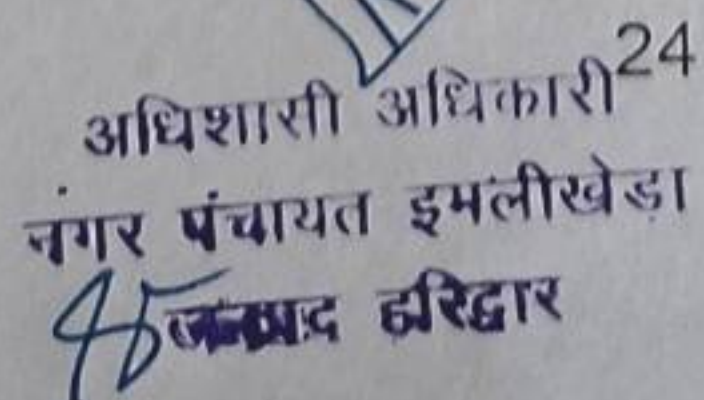 24
अधिशासी अधिकारी
नगर पंचायत इमलीखेड़ा
जनपद हरिद्वार